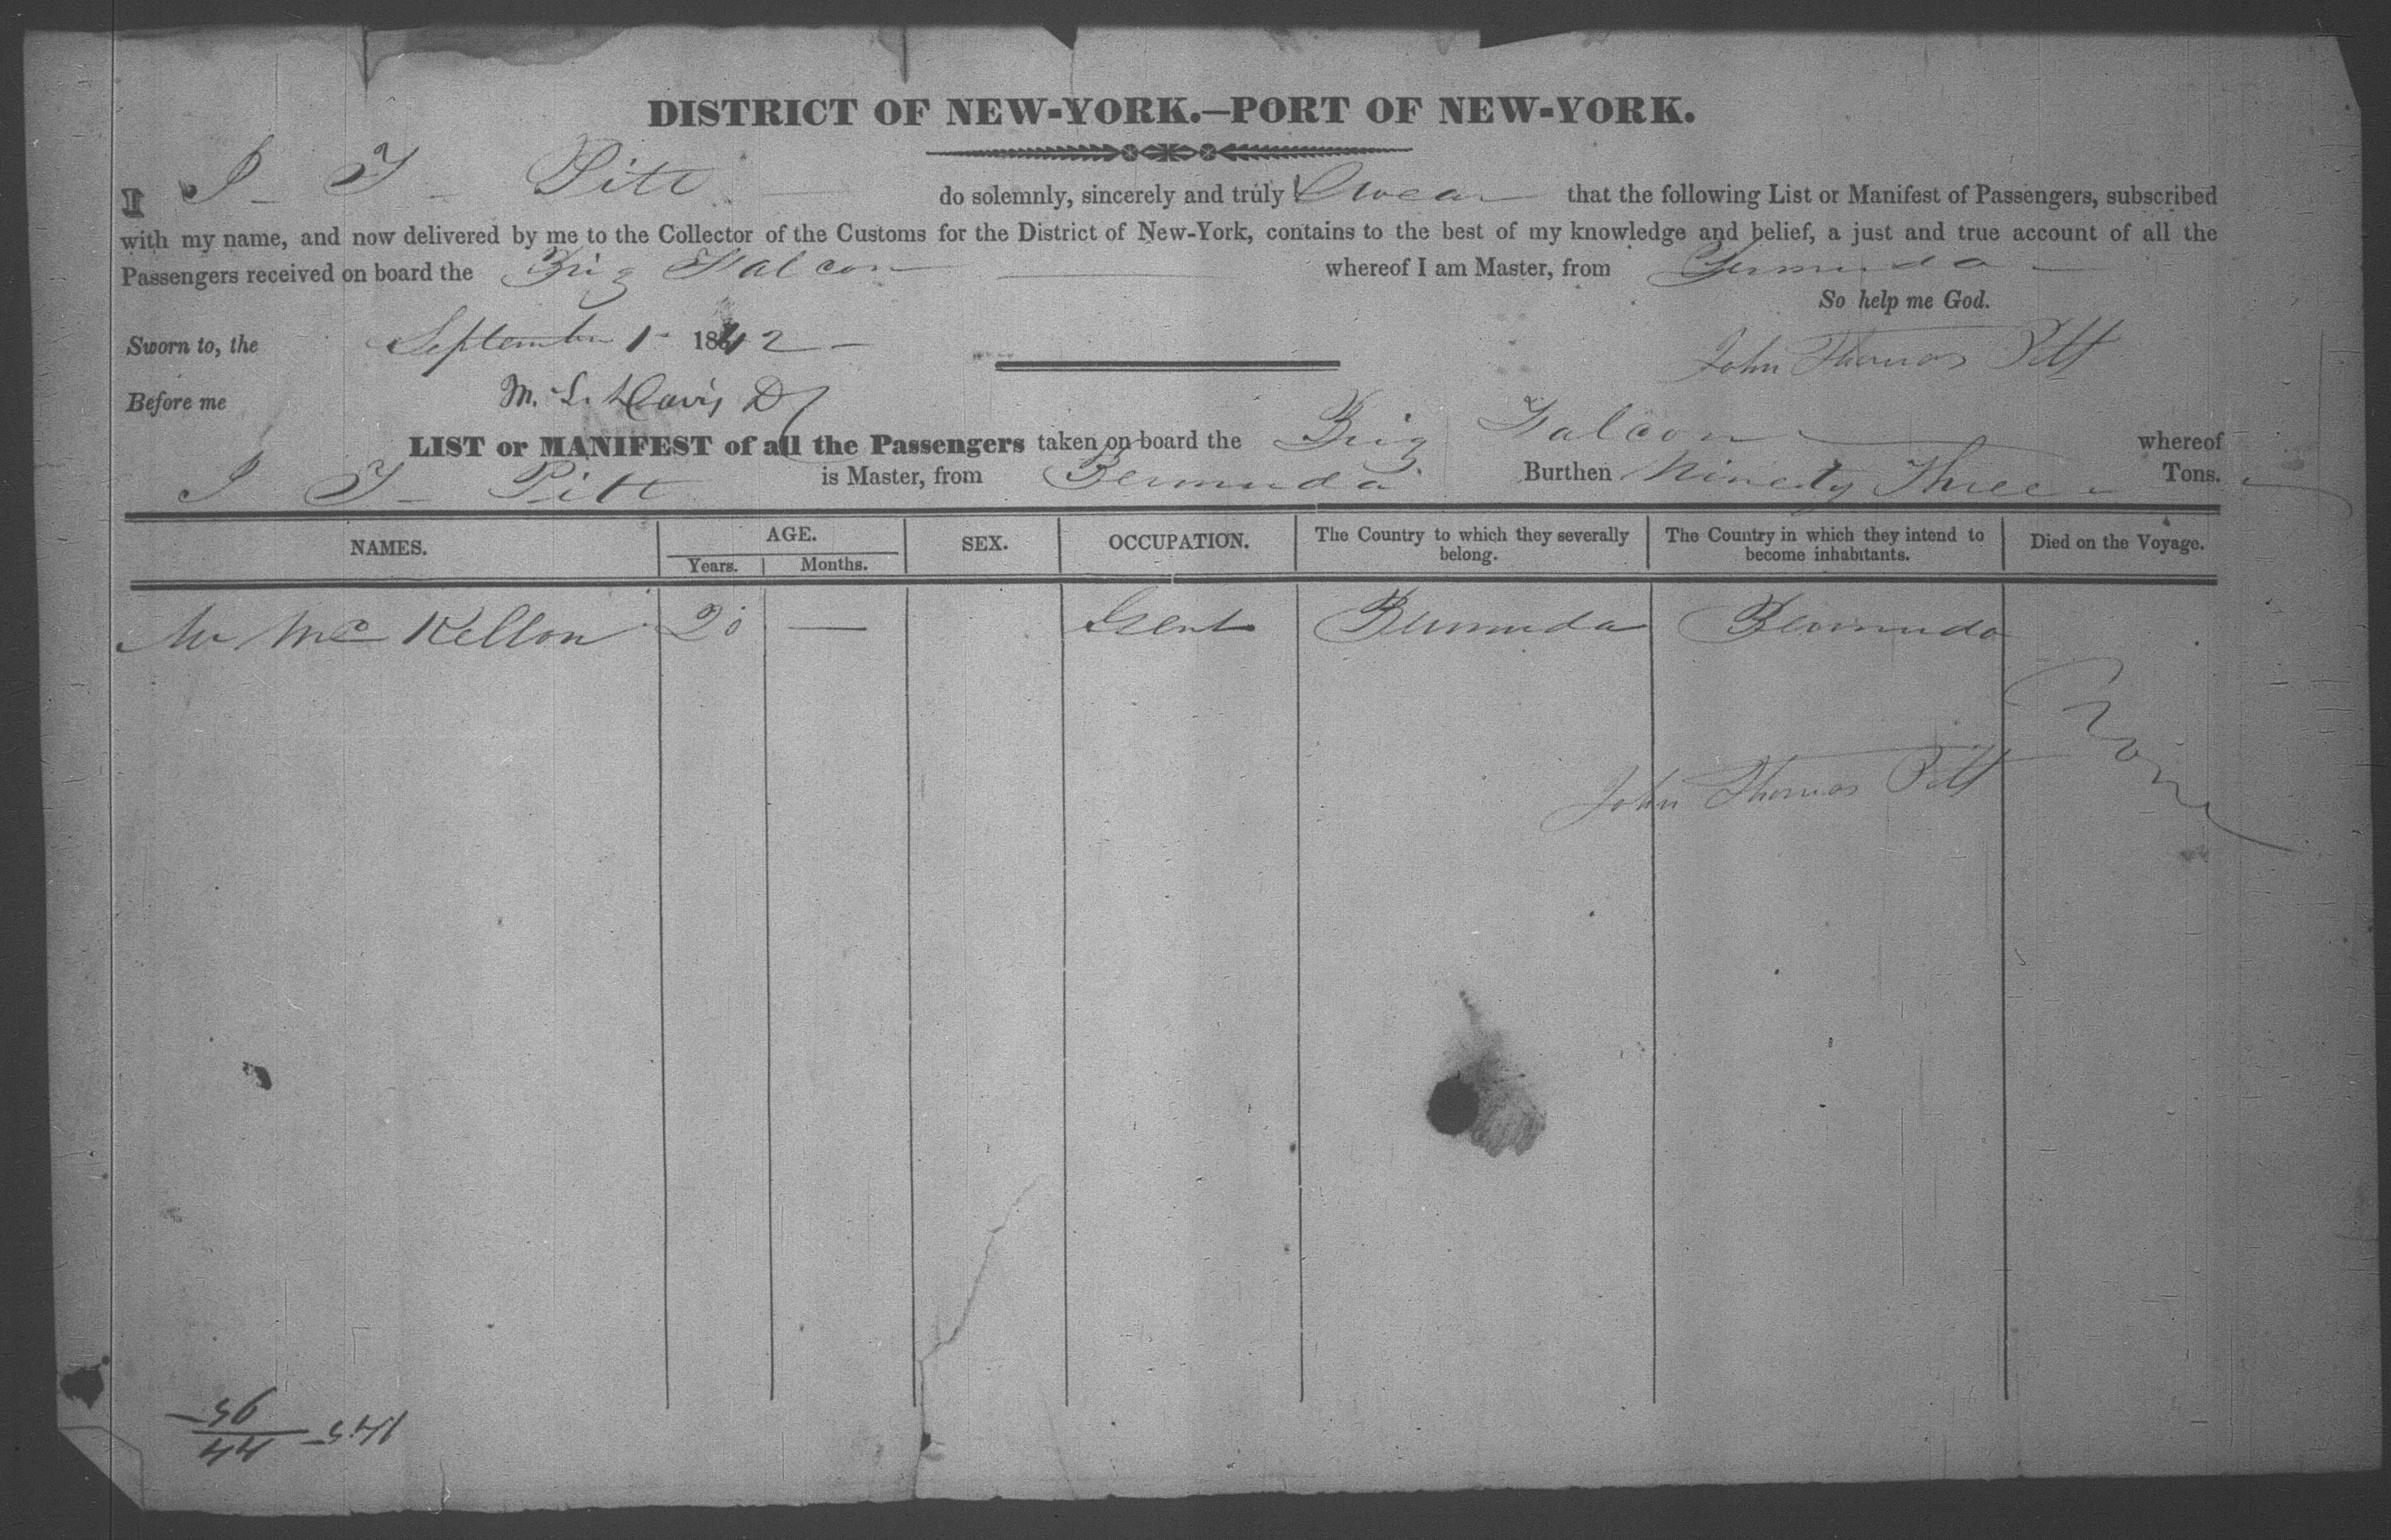 DISTRICT OF NEW-YORK.—PORT OF NEW-YORK.
I J - T - Pitt do solemnly, sincerely and truly Swear that the following List or Manifest of Passengers, subscribed
with my name, and now delivered by me to the Collector of the Customs for the District of New-York, contains to the best of my knowledge and belief, a just and true account of all the
Passengers received on board the Brig Falcon whereof I am Master, from Bermuda
So help me God.
Sworn to, the September 1 - 1842 - John Thomas Pitt
Before me M. L. Davis
LIST or MANIFEST of all the Passengers taken on board the Brig Falcon whereof
J T - Pitt is Master, from Bermuda Burthen Ninety Three Tons.
NAMES. AGE. SEX. OCCUPATION. The Country to which they severally belong. The Country in which they intend to become inhabitants. Died on the Voyage.
Years. Months.
Mr Mc Kellon 20 — Gent Bermuda Bermuda
None
John Thomas Pitt